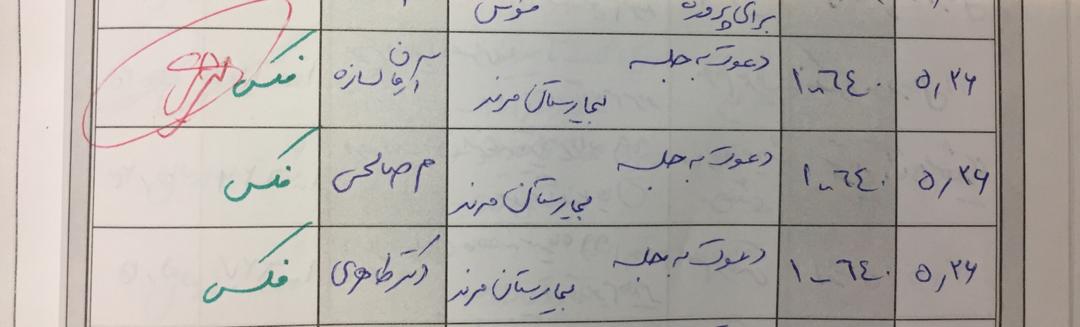 برای پروژه
۵,۲۶ ۱۰-۶۴۰ دعوت به جلسه
بیمارستان مرند سازه فکس
۵,۲۶ ۱۰-۶۴۰ دعوت به جلسه
بیمارستان مرند م صالحی فکس
۵,۲۶ ۱۰-۶۴۰ دعوت به جلسه
بیمارستان مرند دکتر طاهری فکس